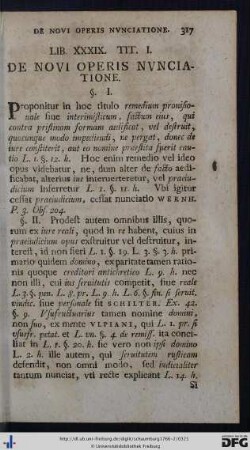 DE NOVI OPERIS NVNCIATIONE. 317
LIB. XXXIX. TIT. I.
DE NOVI OPERIS NVNCIA-
TIONE.
§. I.
Proponitur in hoc titulo remedium prouisio-
nale siue interimisticum, factum eius, qui
contra pristinam formam aedificat, vel destruit,
quocunque modo impediendi, is pergat, donec de
iure constiterit, aut eo nomine praestita fuerit cau-
tio L. 1. §. 12. h. Hoc enim remedio vel ideo
opus videbatur, ne, dum alter de facto aedi-
ficabat, alterius ius interuerteretur, vel praeiu-
dicium inferretur L. 1. §. 11. h. Vbi igitur
cessat praeiudicium, cessat nunciatio WERNH.
P. 3. Obs. 204.
§. II. Prodest autem omnibus illis, quo-
rum ex iure reali, quod in re habent, cuius in
praeiudicium opus exstruitur vel destruitur, in-
terest, id non fieri L. 1. §. 19. L. 3. §. 3. h.
primario quidem domino, ex paritate tamen ratio-
nis quoque creditori antichretico L. 9. h. nec
non illi, cui ius seruitutis competit, siue reale
L. 3. §. pen. L. 8. pr. L. 9. h. L. 6. §. fin. si seruit.
vindic. siue personale sit SCHILTER. Ex. 42.
§. 9. Vsufructuarius tamen nomine domini,
non suo, ex mente VLPIANI, qui L. 1. pr. si
vsufr. petat. et L. vn. §. 4. de remiss. ita conci-
liat in L. 1. §. 20. h. sic vero non ipsi domino
L. 2. h. ille autem, qui seruitutem rusticam
defendit, non omni modo, sed iudicialiter
tantum nunciat, vti recte explicant L. 14. h.
Si
http://dl.ub.uni-freiburg.de/diglit/schaumburg1766-2/0321
© Universitätsbibliothek Freiburg